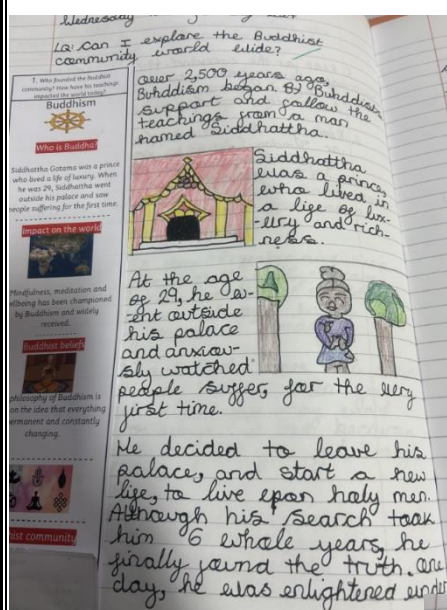 Wednesday
LQ: Can I explore the Buddhist
community world wide?
1. Who founded the Buddhist
community? How have his teachings
impacted the world today?
Buddhism
Who is Buddha?
Siddhattha Gotama was a prince
who lived a life of luxury. When
he was 29, Siddhattha went
outside his palace and saw
people suffering for the first time.
Impact on the world
Mindfulness, meditation and
wellbeing has been championed
by Buddhism and widely
received.
Buddhist beliefs
philosophy of Buddhism is
on the idea that everything
permanent and constantly
changing.
hist community
Over 2,500 years ago,
Buhddism began. Buhddists
support and follow the
teachings from a man
named Siddhattha.
Siddhattha
was a prince,
who lived in
a life of lux-
-ury and rich-
-ness.
At the age
of 29, he w-
-ent outside
his palace
and anxiou-
-sly watched
people suffer, for the very
first time.
He decided to leave his
palace, and start a new
life, to live upon holy men.
Although his search took
him 6 whole years, he
finally found the truth. One
day, he was enlightened und